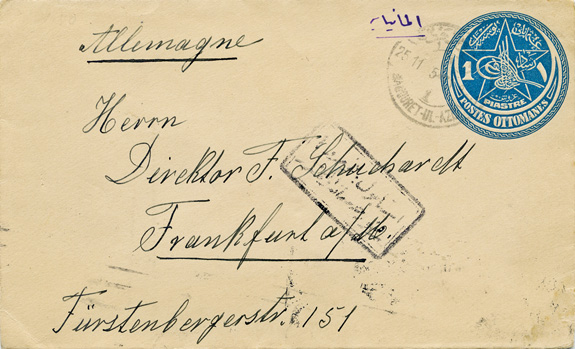 Allemagne
المانيا
25 11 5
1 1
PIASTRE
POSTES OTTOMANES
Herrn
Direktor F. Schuchardt
Frankfurt a/M.
Fürstenbergerstr. 151